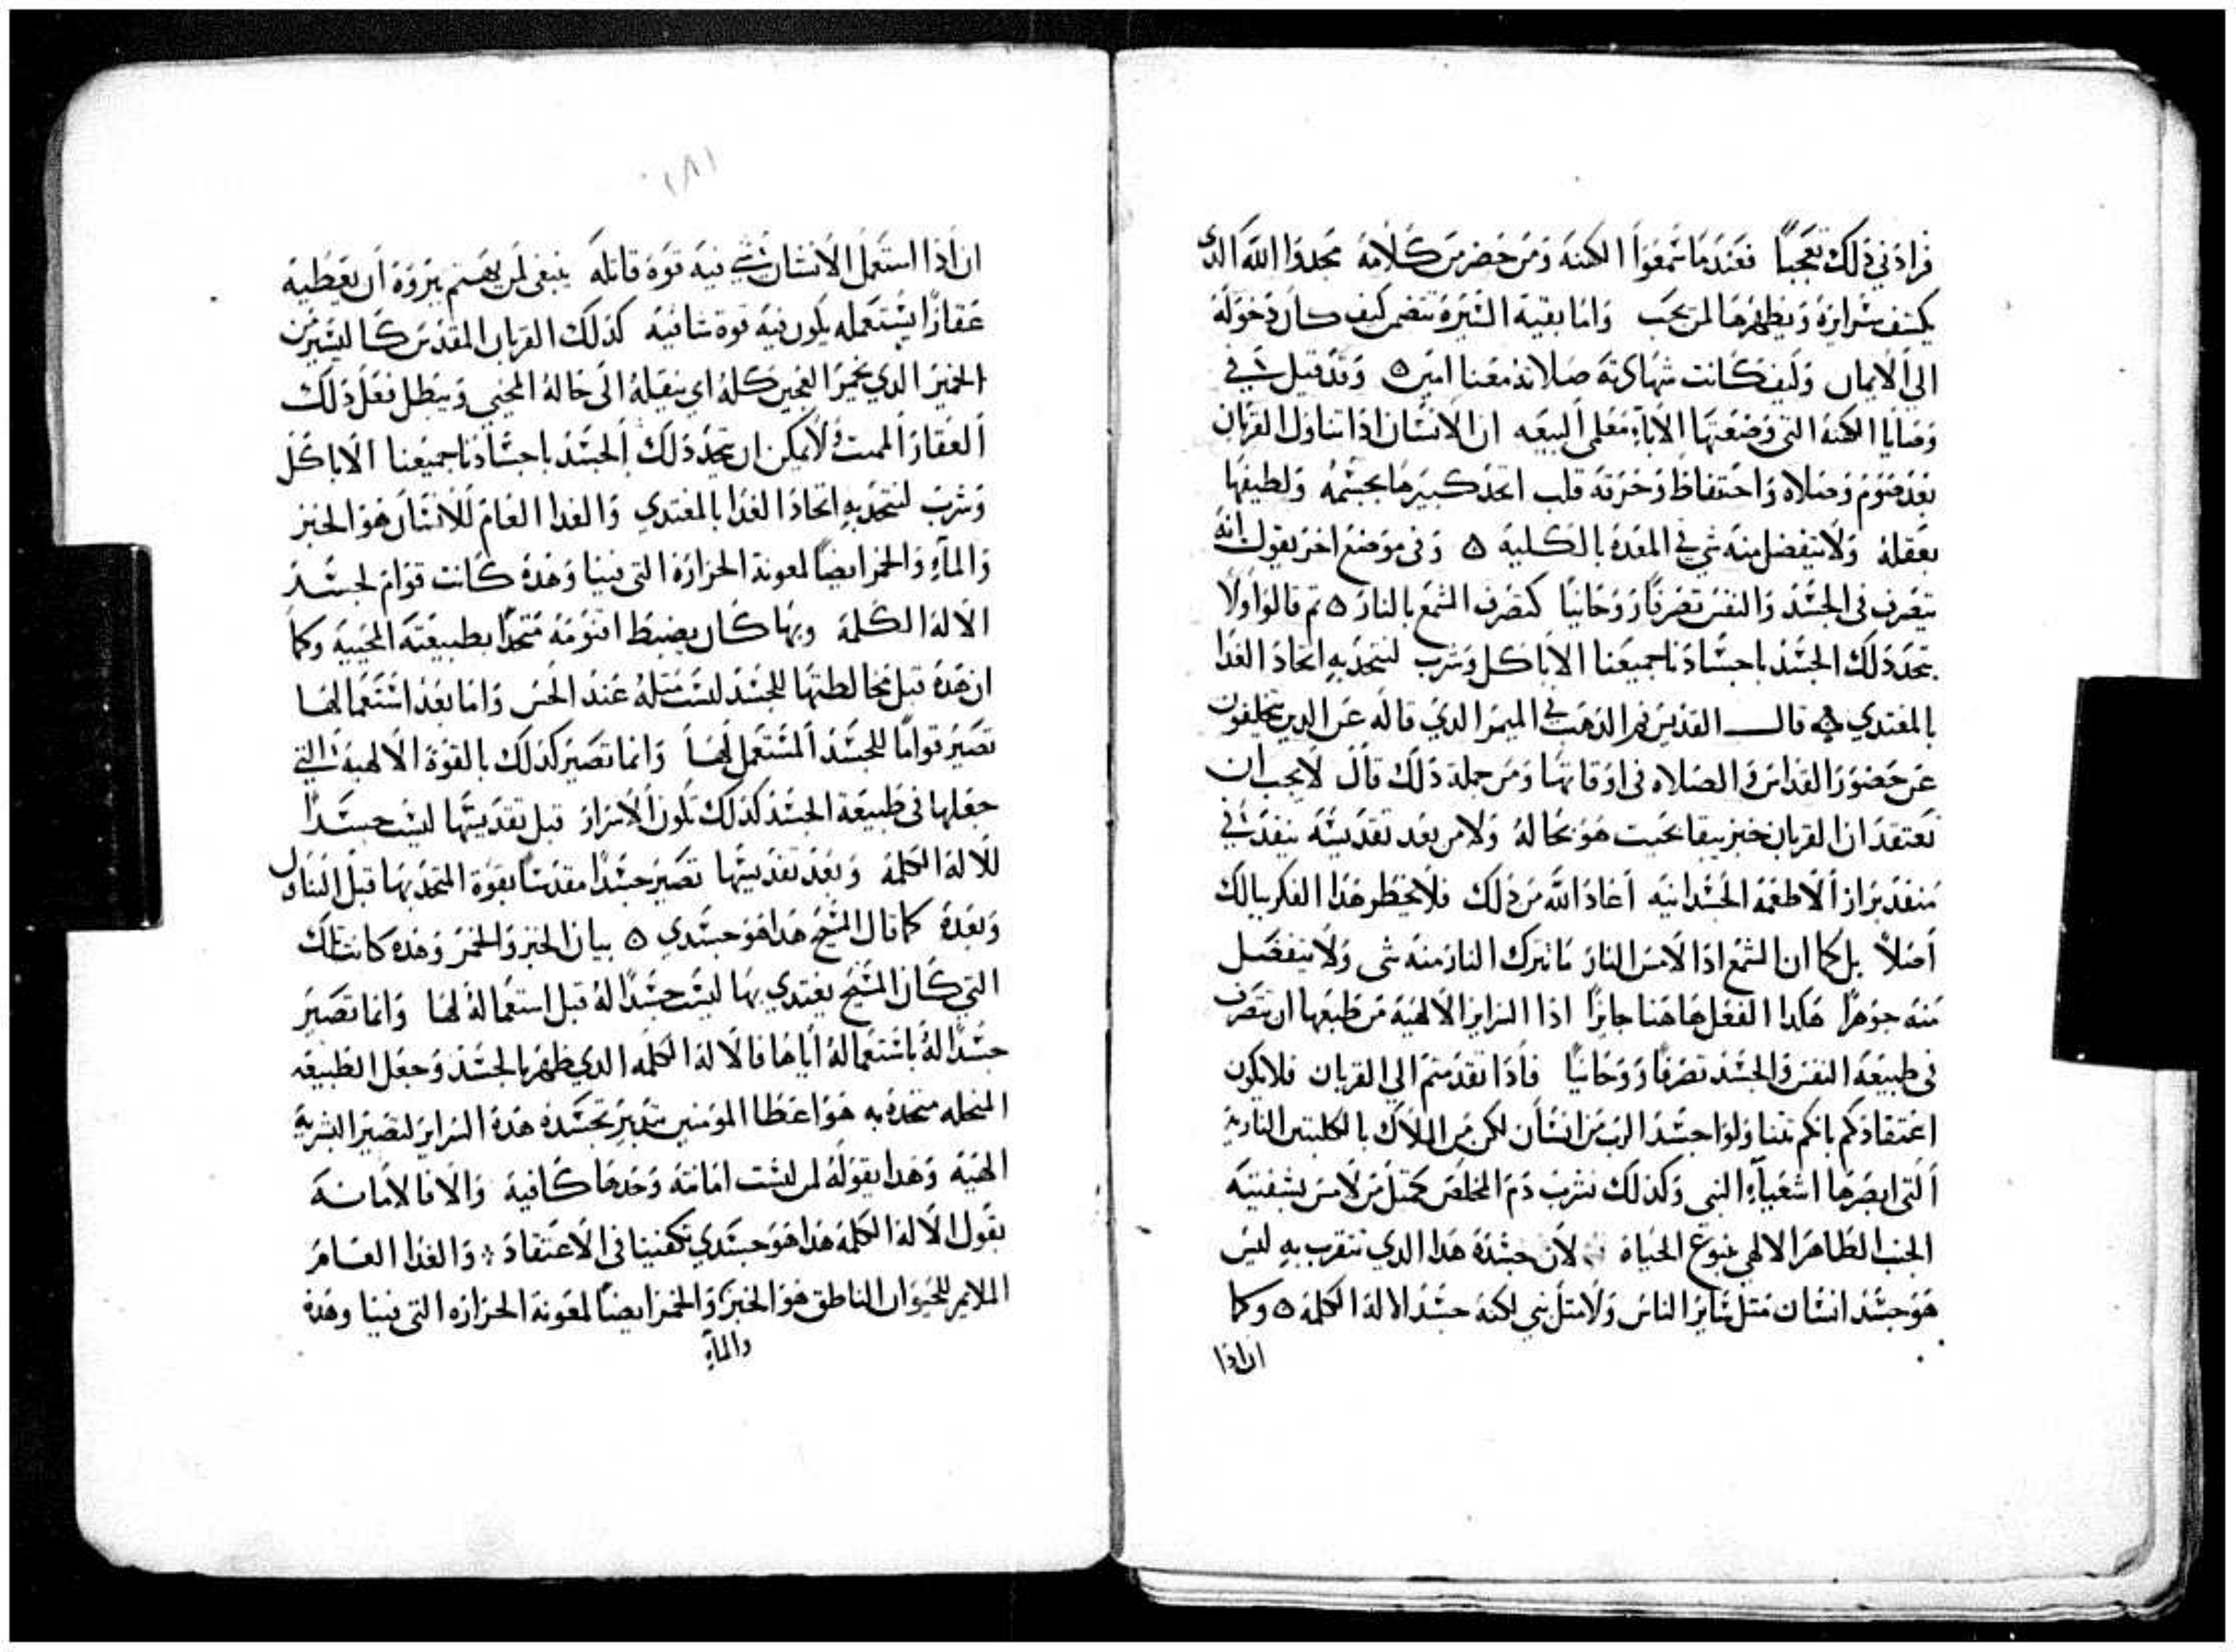 فزادني ذلك تعجبًا فعندما سمعوا الكهنه ومن حضر من كلامه مجدوا الله الذي
يكشف سرايره ويظهرها لمن يحب واما بقية السيره تتضمن كيف كان دخوله
الي الايمان وكيف كانت شهادته صلاته معنا امين ٥ وقد قيل في
وصايا الكهنه التي وضعتها الاباء معلمي البيعه ان الانسان اذا تناول القربان
بعد صوم وصلاه واحتفاظ وحرقة قلب اتحد كبيرها بجسمه ولطيفها
بعقله ولا ينفصل منه شي في المعده بالكليه ٥ وفي موضع اخر يقول انه
يتصرف في الجسد والنفس تصرفًا روحانيًا كتصرف الشمع بالنار ٥ ثم قالوا ولا
يتحد ذلك الجسد باجسادنا جميعنا الا باكل وشرب لنتحد به اتحاد الغدا
بالمغتدي ٥ قال القديس فم الذهب في الميمر الذي قاله عن الدين يتخلفون
عن حضور القداس والصلاه في اوقاتها ومن جملة ذلك قال لا يجب ان
تعتقد ان القربان خبز يبقا بحيت هو بحاله ولا من بعد تقديسه ينفد في
منفد براز الاطعمه الجسدانيه اعاد الله من ذلك فلا يخطر هذا الفكر ببالك
اصلاً بل كما ان الشمع اذا لامس النار ما تترك النار منه شي ولا ينفصل
منه جوهرًا هكدا الفعل هاهنا جايزًا اذا السراير الالهية من طبعها ان تتصرف
في طبيعة النفس والجسد تصرفًا روحانيًا فاذا تقدمتم الي القربان فلا يكون
اعتقادكم بانكم تتناولوا جسد الرب من انسان لكن من الملاك بالكلبتين النارية
التي ابصرها اشعياء النبي وكذلك نشرب دم المخلص كمتل من لامس بشفتيه
الجنب الطاهر الالهي ينبوع الحياة لان جسده هدا الدي نتقرب به ليس
هو جسد انسان متل ساير الناس ولا متل نبي لكنه جسد الاله الكلمه ٥ وكما
ان اذا
١٨١
ان اذا استعمل الانسان شي فيه قوة قاتله ينبغي لمن يهتم ببروه ان يعطيه
عقارًا يستعمله يكون فيه قوة شافيه كذلك القربان المقدس كاليسير من
الخمير الدي يخمر العجين كله اي ينقيله الى حاله المحيي ويبطل فعل ذلك
العقار المميت ولا يمكن ان يتحد ذلك الجسد باجسادنا جميعنا الا باكل
وشرب لنتحد به اتحاد الغدا بالمغتدي والغدا العام للانسان هو الخبز
والماء والخمر ايضًا لمعونة الحرارة التي فينا وهده كانت قوام لجسد
الاله الكلمه وبها كان يضبط اقنومه متحدًا بطبيعته المحييه وكما
ان هده قبل مخالطتها للجسد ليست متله عند الحس واما بعد استعمالها
تصير قوامًا للجسد المستعمل لها وانما تصير كذلك بالقوة الالهيه التي
جعلها في طبيعة الجسد كذلك تكون الاسرار قبل تقديسها ليست جسدًا
للاله الكلمه وبعد تقديسها تصير جسدًا مقدسًا بقوة المتحد بها قبل التناول
وبعده كما قال المسيح هدا هو جسدي ٥ بيان الخبز والخمر وهده كانت تلك
التي كان المسيح يغتدي بها ليست جسدًا له قبل استعماله لها وانما تصير
جسدًا له باستعماله اياها فالاله الكلمه الدي ظهر بالجسد وجعل الطبيعه
المنحله متحده به هو اعطا المومنين بتدبير تجسده هدة السراير لتصير البشرية
الهية وهدا بقوله لمن ليست امانته وحدها كافية والا فالامانة
بقول الاله الكلمه هدا هو جسدي تكفينا في الاعتقاد والغدا العام
الملايم للحيوان الناطق هو الخبز والخمر ايضًا لمعونة الحرارة التي فينا وهدة
والماء